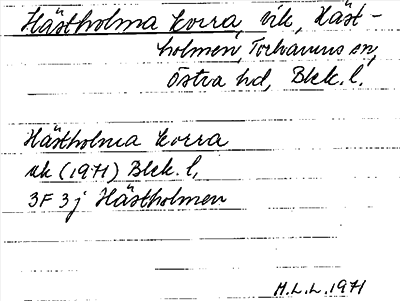 Hästholma korra, vik, Häst-
holmen, Torhamns sn,
Östra hd, Blek. l.
Hästholma korra
vik (1971) Blek. l.
3F 3j Hästholmen
H.L.L. 1971